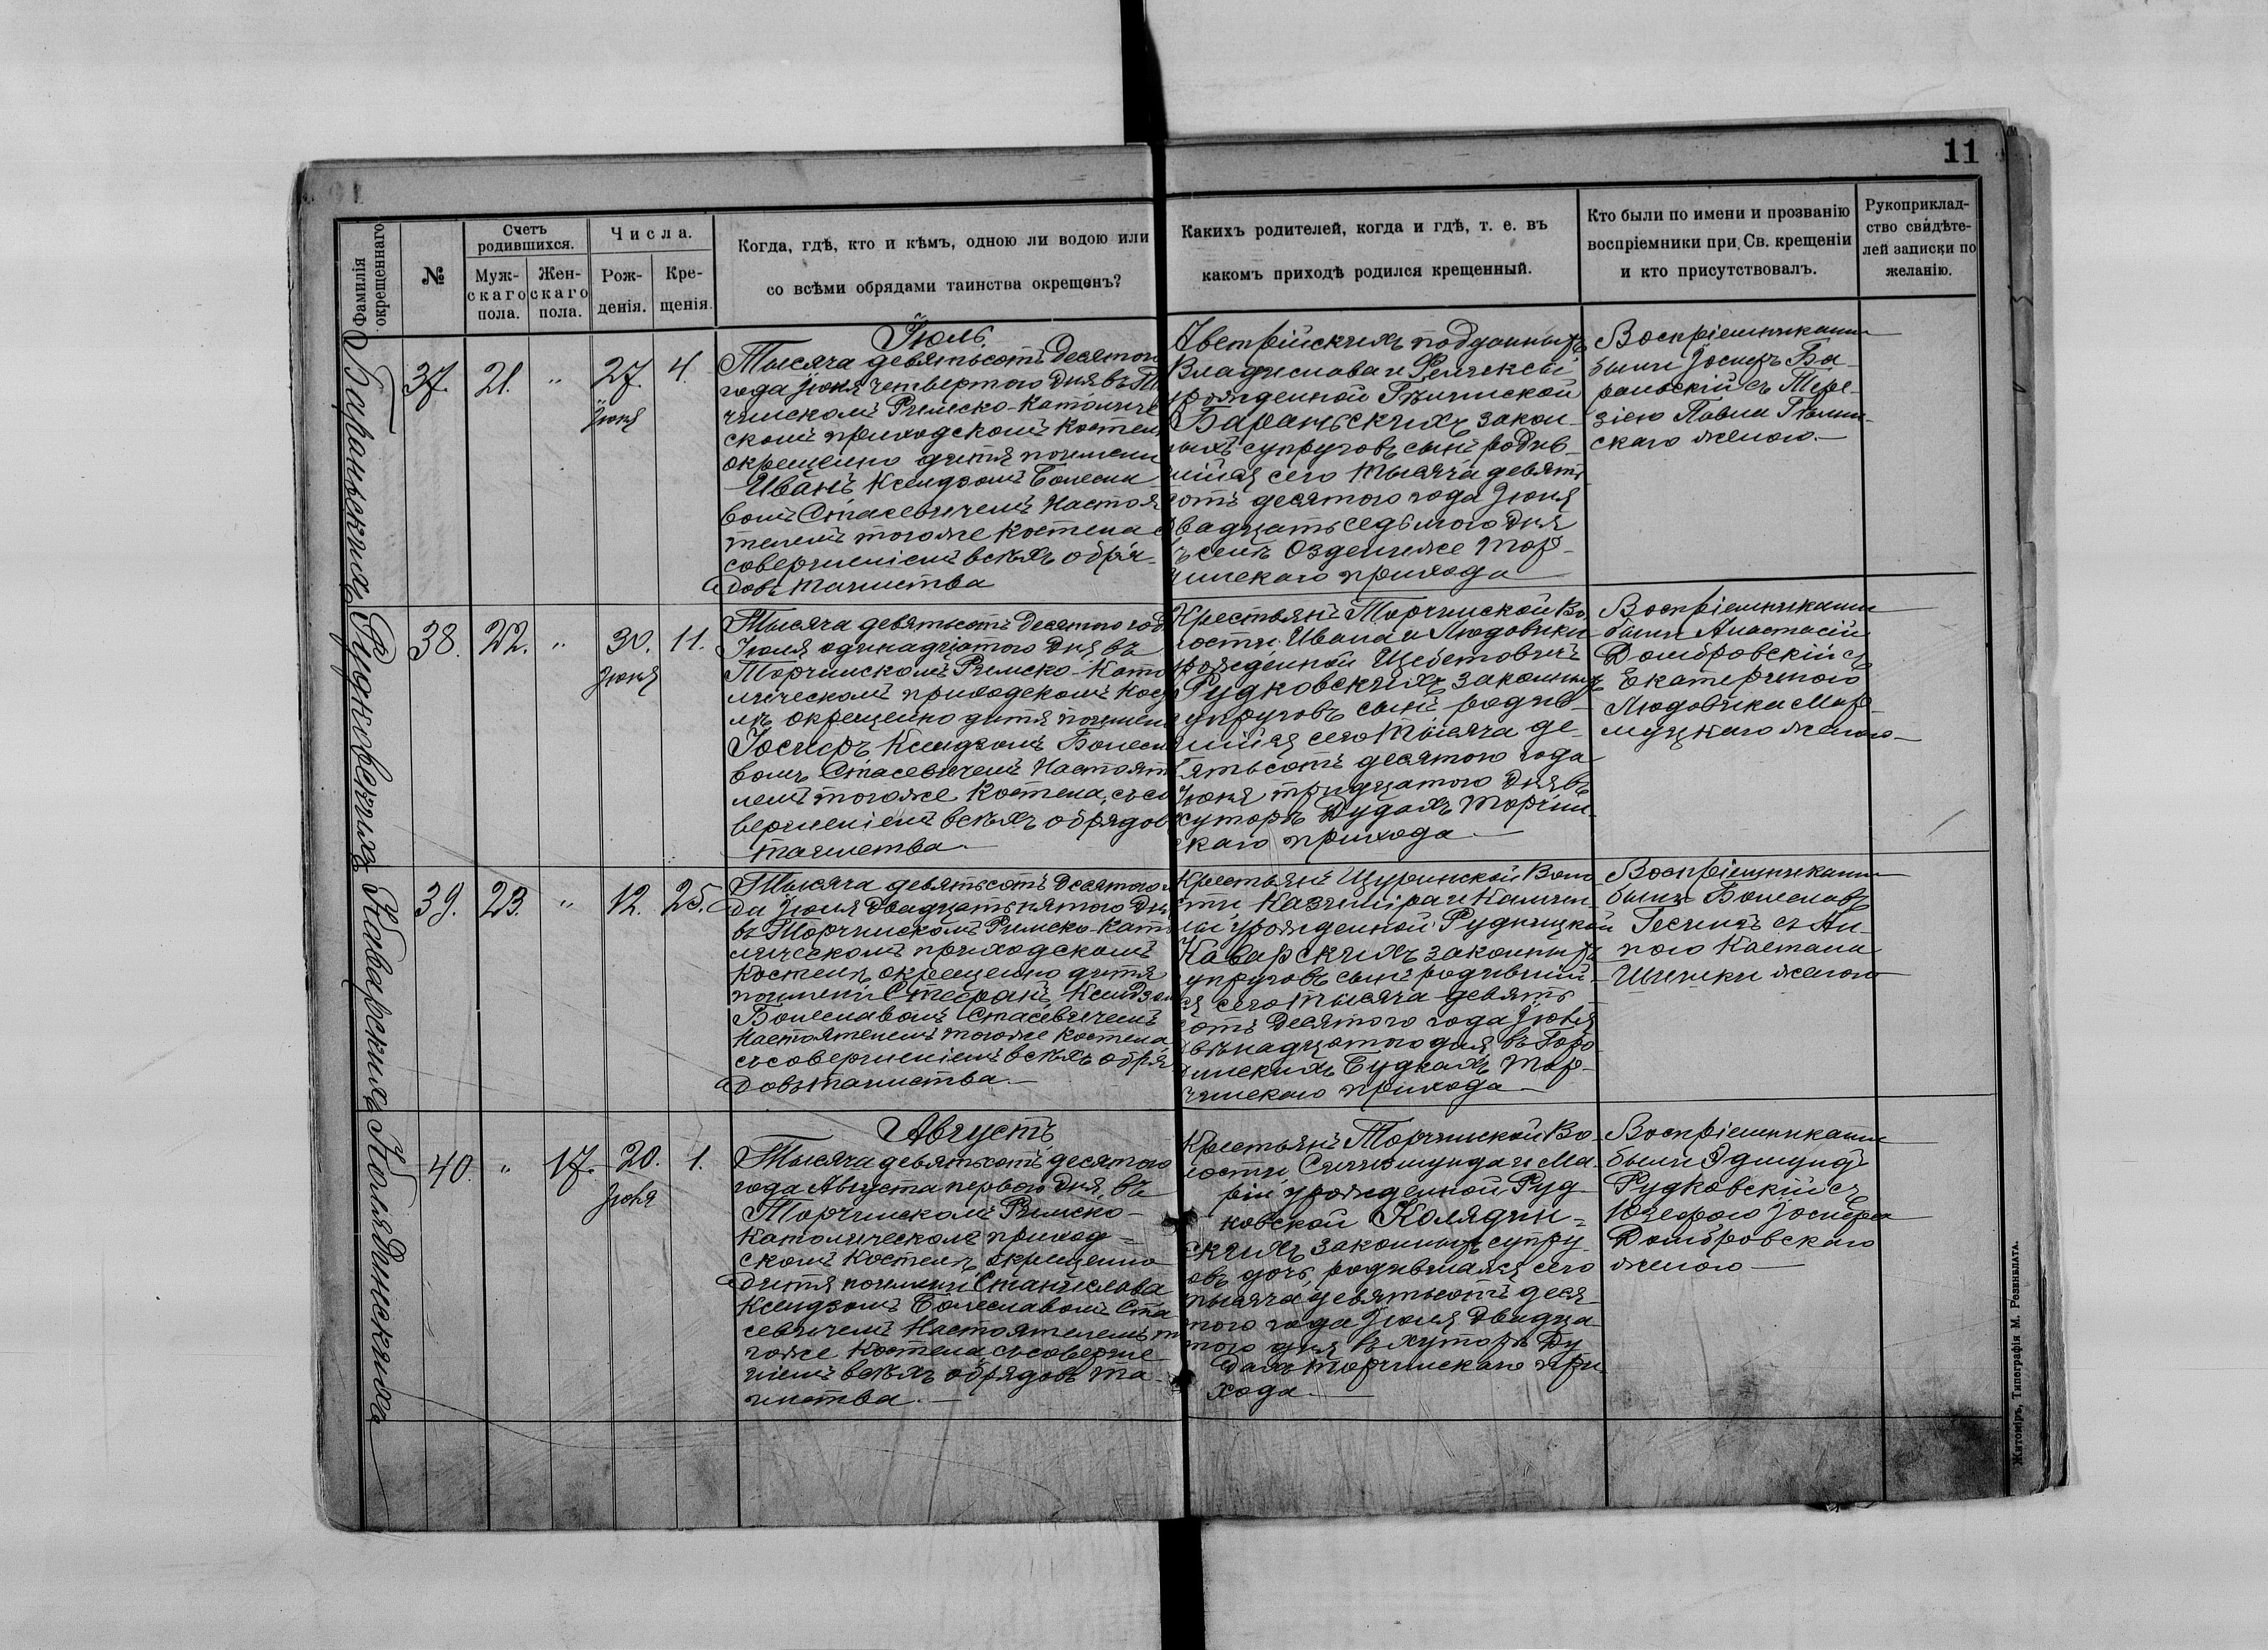 11
Фамилія окрещеннаго
№
Счетъ родившихся.
Муж-
скаго
пола.
Жен-
скаго
пола.
Числа.
Рож-
денія.
Кре-
щенія.
Когда, гдѣ, кто и кѣмъ, одною ли водою или
со всѣми обрядами таинства окрещенъ?
Какихъ родителей, когда и гдѣ, т. е. въ
какомъ приходѣ родился крещенный.
Кто были по имени и прозванію
воспріемники при Св. крещеніи
и кто присутствовалъ.
Рукоприклад-
ство свидѣте-
лей записки по
желанію.
Бараньскихъ
37.
21.
"
27.
Іюня
4.
Іюль.
Тысяча девятьсотъ десятого
года Іюля четвертого дня въ
чинскомъ Римско-Католиче
скомъ приходскомъ костел
окрещено дитя по имени
Иванъ, Ксендзомъ Болесла
вомъ Стасевичемъ Настоя
телемъ того же костела
совершеніемъ всѣхъ обря-
довъ таинства
Австрійскихъ подданныхъ
Владислава и Феликсы
урожденной
Бараньскихъ закон-
ныхъ супруговъ сынъ, родив-
шійся сего тысяча девять
сотъ десятого года Іюня
двадцать седьмого дня
въ селѣ Оздениже Тор-
чинскаго прихода
Воспріемниками
были Іосифъ Ба-
раньскій съ Тере-
зіею Павла
скаго женою.
Рудковскихъ
38.
22.
"
30.
Іюня
11.
Тысяча девятьсотъ десятого год
Іюля одинадцатого дня въ
Торчинскомъ Римско-Като
лическомъ приходскомъ Кост
лѣ окрещено дитя по имени
Іосифъ, Ксендзомъ Болесла
вомъ Стасевичемъ Настояте
лемъ того же Костела, съ со
вершеніемъ всѣхъ обрядов
таинства.
Крестьянъ Торчинской Во-
лости, Ивана и Людовики
урожденной Щебетовичъ
Рудковскихъ законныхъ
супруговъ сынъ, родив-
шійся сего тысяча де-
вятьсотъ десятого года
Іюня тридцатого дня въ
хуторѣ Дудахъ Торчин-
скаго прихода
Воспріемниками
были Анастасій
Домбровскій съ
Екатериною
Людовика Мар-
муцкаго женою
Каварскихъ
39.
23.
"
12.
25.
Тысяча девятьсотъ десятого го
да Іюля двадцать пятого дня
въ Торчинскомъ Римско-Като
лическомъ приходскомъ
Костелѣ, окрещено дитя
по имени Стефанъ, Ксендзом
Болеславомъ Стасевичемъ
Настоятелемъ того же костела
съ совершеніемъ всѣхъ обря
довъ таинства.
Крестьянъ Щуринской Воло
сти Казиміра и Камил-
лы урожденной Рудницкой
Каварскихъ законныхъ
супруговъ сынъ, родившій-
ся сего тысяча девять
сотъ десятого года Іюля
двѣнадцатого дня въ Горо-
динскихъ Будкахъ Тор-
чинскаго прихода
Воспріемниками
были Болеславъ
съ Ан-
ною Каетана
женою
Колядинскихъ
40.
"
17.
20.
Іюля
1.
Августъ
Тысяча девятьсотъ десятого
года Августа первого дня, въ
Торчинскомъ Римско-
Католическомъ приход-
скомъ Костелѣ, окрещено
дитя по имени Станислава
Ксендзомъ Болеславомъ Ста
севичемъ Настоятелемъ т
гоже Костела, съ соверше
ніемъ всѣхъ обрядовъ та-
инства.
Крестьянъ Торчинской Во-
лости, Сигизмунда и Ма-
ріи урожденной Руд-
ковской Колядин-
скихъ законныхъ супру
овъ дочь, родившаяся сего
тысяча девятьсотъ деся-
того года Іюля двадца-
того дня въ хуторѣ Ду
дахъ Торчинскаго при-
хода.
Воспріемниками
были Эдмундъ
Рудковскій съ
Юзефою Іосифа
Домбровскаго
женою
Житоміръ, Типографія М. Розенблата.